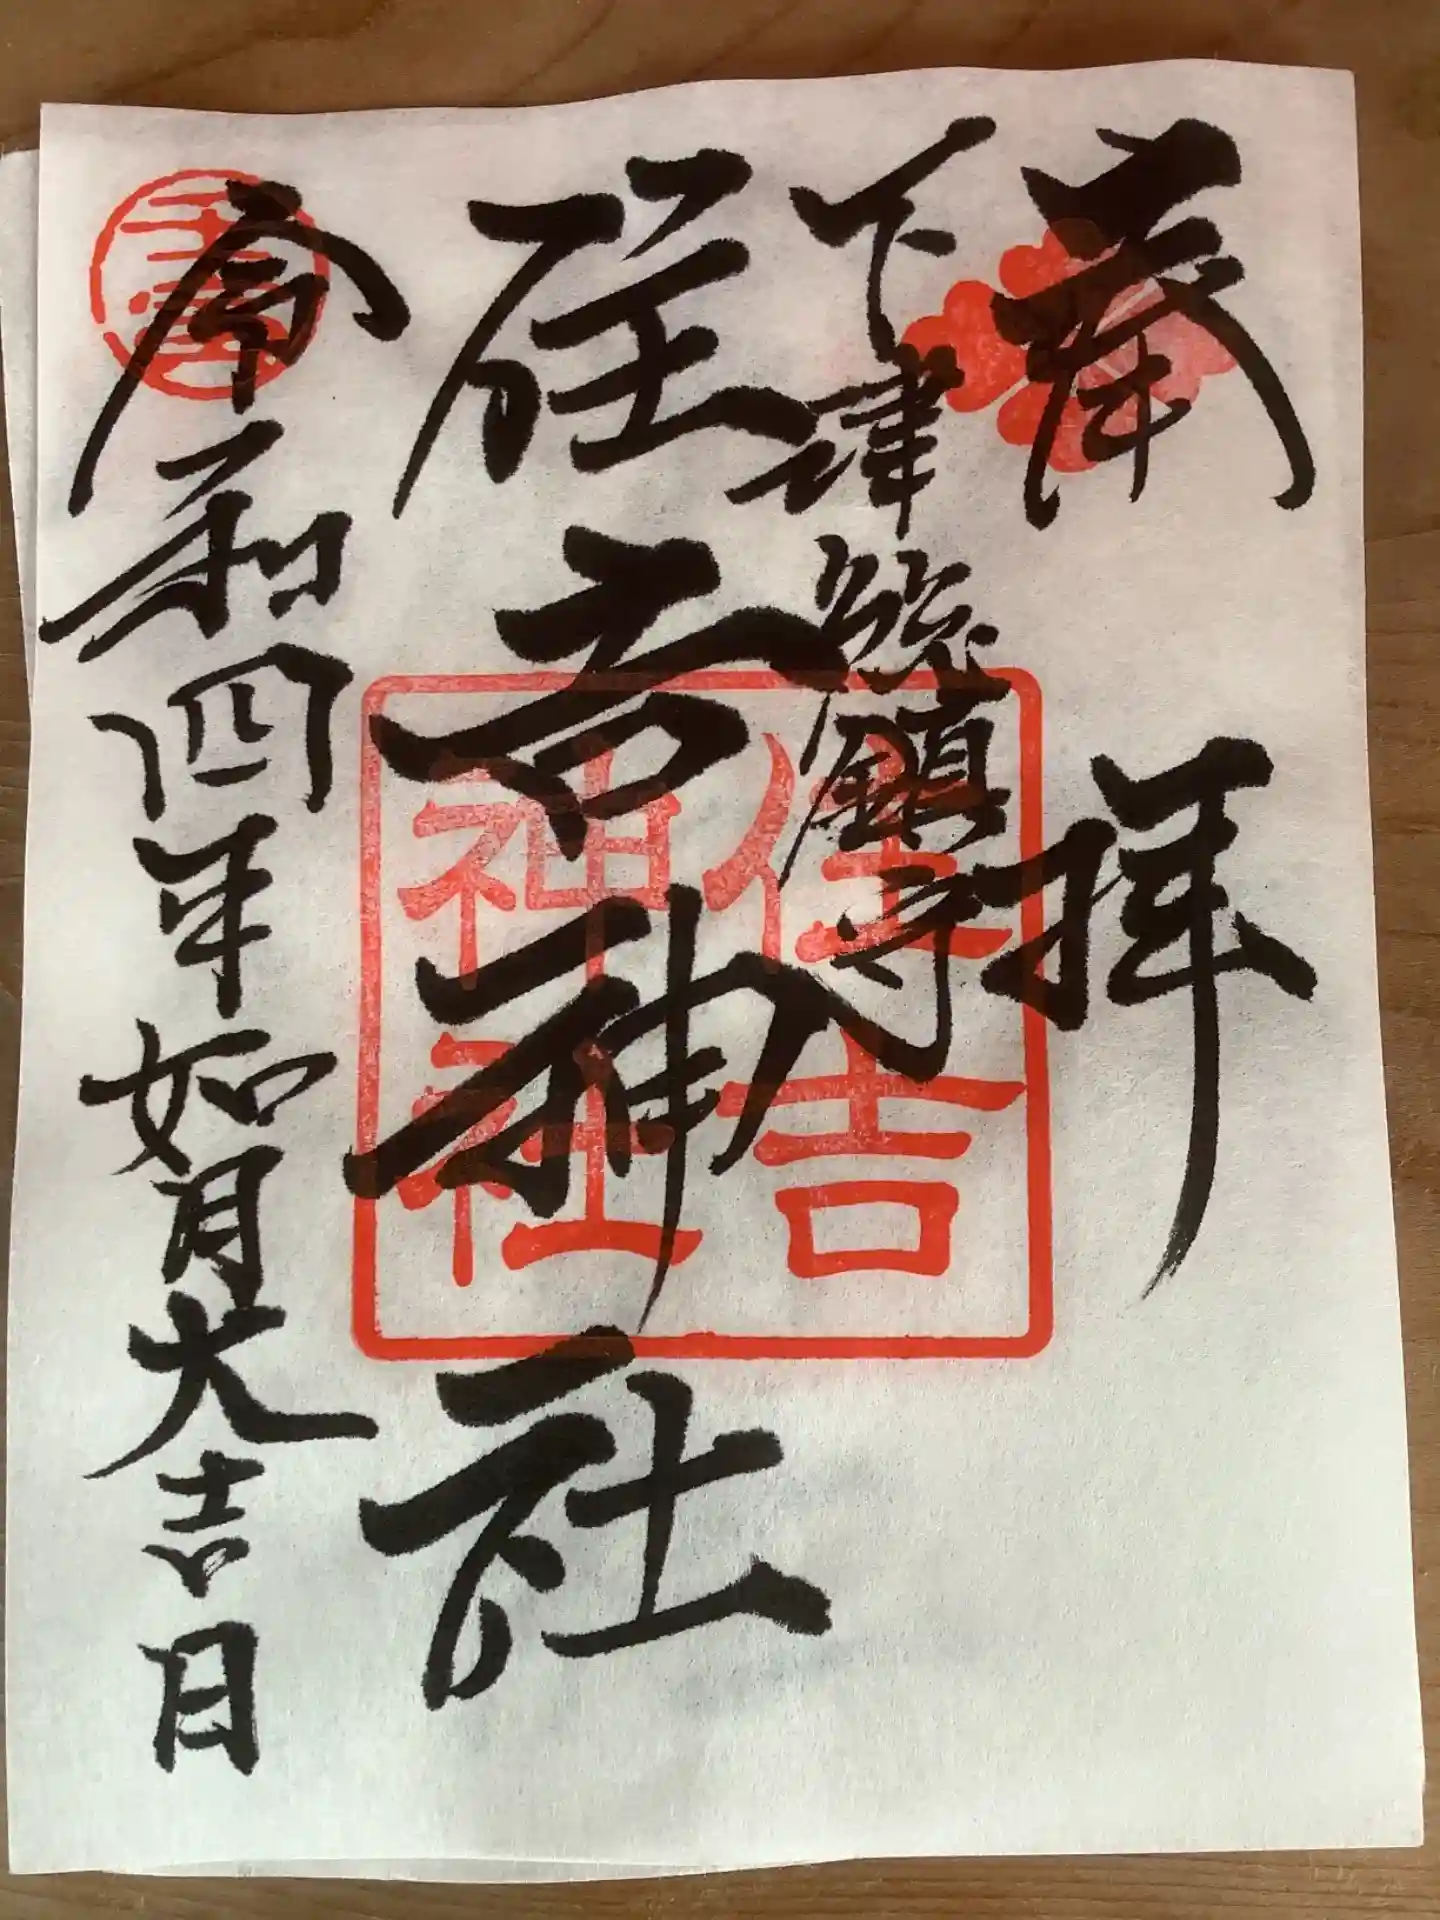 奉拝
下津総鎮守
住吉神社
令和四年如月大吉日
住吉
神社